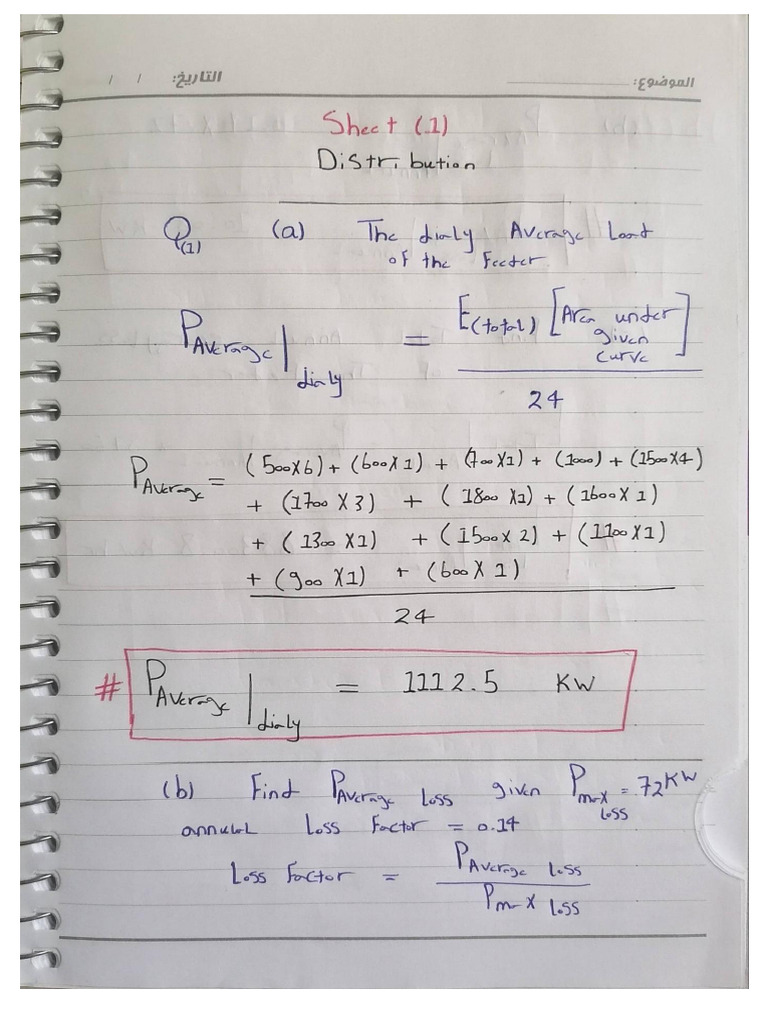 الموضوع: التاريخ: / /
Sheet (1)
Distribution
Q(1) (a) The dialy Average Load
of the Feeder
PAverage|dialy = E(total) [Area under given curve] / 24
PAverage = (500x6) + (600x1) + (700x1) + (1000) + (1500x4)
+ (1700 x 3) + (1800 x1) + (1600x1)
+ (1300 x1) + (1500x2) + (1100x1)
+ (900 x1) + (600x1)
24
# PAverage|dialy = 1112.5 KW
(b) Find PAverage Loss given Pmax Loss = 72KW
annulal Loss Factor = 0.14
Loss Factor = PAverage Loss / Pmax Loss